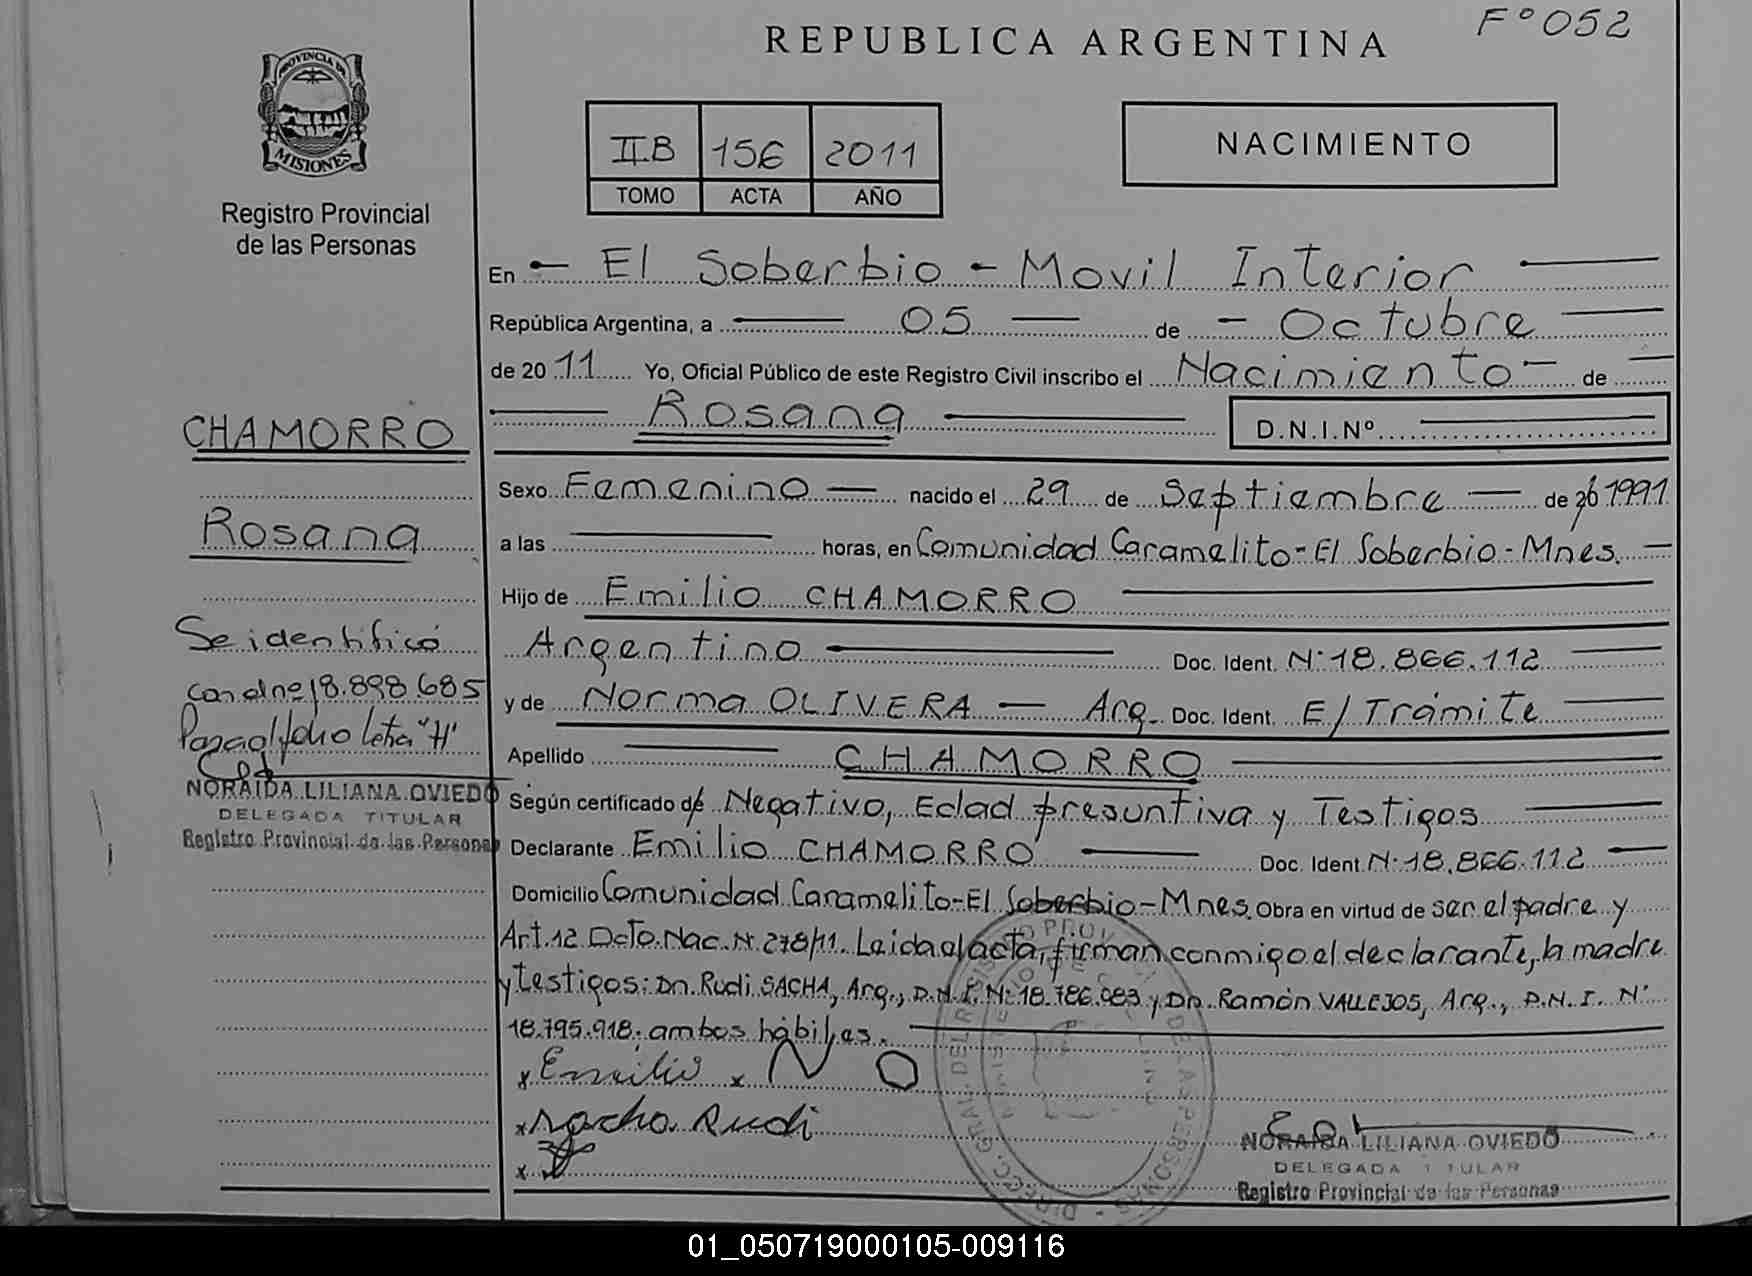 F° 052
REPUBLICA ARGENTINA
PROVINCIA DE
MISIONES
Registro Provincial
de las Personas
IIB 156 2011
TOMO ACTA AÑO
NACIMIENTO
En El Soberbio - Movil Interior
República Argentina, a 05 de - Octubre
de 2011 Yo, Oficial Público de este Registro Civil inscribo el Nacimiento - de
Rosana D.N.I.Nº
CHAMORRO
Rosana
Sexo Femenino nacido el 29 de Septiembre de 20 1991
a las horas, en Comunidad Caramelito - El Soberbio - Mnes.
Hijo de Emilio CHAMORRO
Argentino Doc. Ident. N° 18.866.112
y de Norma OLIVERA - Arg. Doc. Ident. E/Trámite
Apellido CHAMORRO
Según certificado de Negativo, Edad presuntiva y Testigos
Declarante Emilio CHAMORRO Doc. Ident. N° 18.866.112
Domicilio Comunidad Caramelito - El Soberbio - Mnes. Obra en virtud de ser el padre y
Art. 12 Dcto. Nac. N° 278/11. Leida el acta, firman conmigo el declarante, la madre
y testigos: Dn. Rudi SACHA, Arg., D.N.I. N° 18.786.083 y Dn. Ramón VALLEJOS, Arg., D.N.I. N°
18.795.918. ambos hábiles.
x Emilio x N O
x Sacha Rudi
x
Se identificó
con dni 18.898.685
Pasa al folio letra "H"
NORAIDA LILIANA OVIEDO
DELEGADA TITULAR
Registro Provincial de las Personas
NORAIDA LILIANA OVIEDO
DELEGADA TITULAR
Registro Provincial de las Personas
01_050719000105-009116